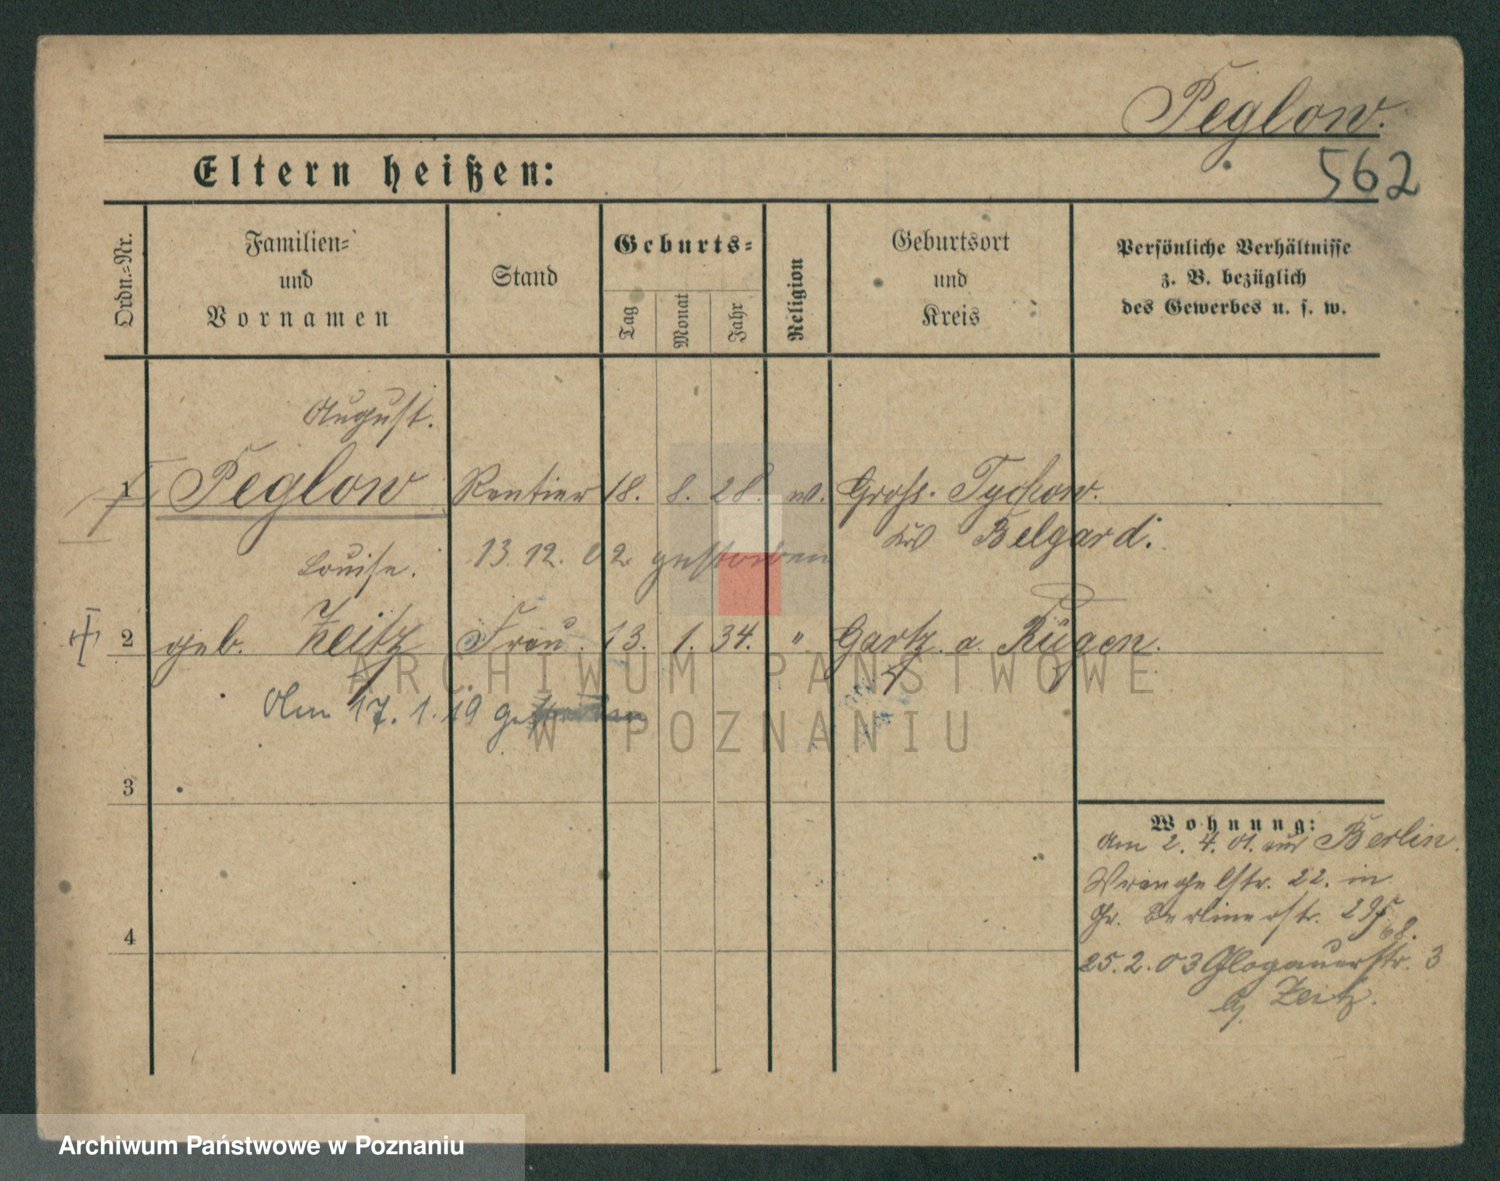 Peglow.
562
Eltern heißen:
Ordn.-Nr.
Familien-
und
Vornamen
Stand
Geburts-
Tag
Monat
Jahr
Religion
Geburtsort
und
Kreis
Persönliche Verhältnisse
z. B. bezüglich
des Gewerbes u. s. w.
August.
1 Peglow Rentier 18. 8. 28. ev. Gross. Tychow.
Krs Belgard.
13. 12. 02 gestorben
Louise.
2 geb. Zeitz Frau. 13. 1. 34. " Gartz a. Rügen.
Am 17. 1. 19 gestorben
3
4
Wohnung:
Am 2. 4. 01. aus Berlin.
Wrangelstr. 22. in
Gr. Berlinerstr.
25. 2. 03 Glogauerstr. 3
Zeitz.
ARCHIWUM PAŃSTWOWE
W POZNANIU
Archiwum Państwowe w Poznaniu